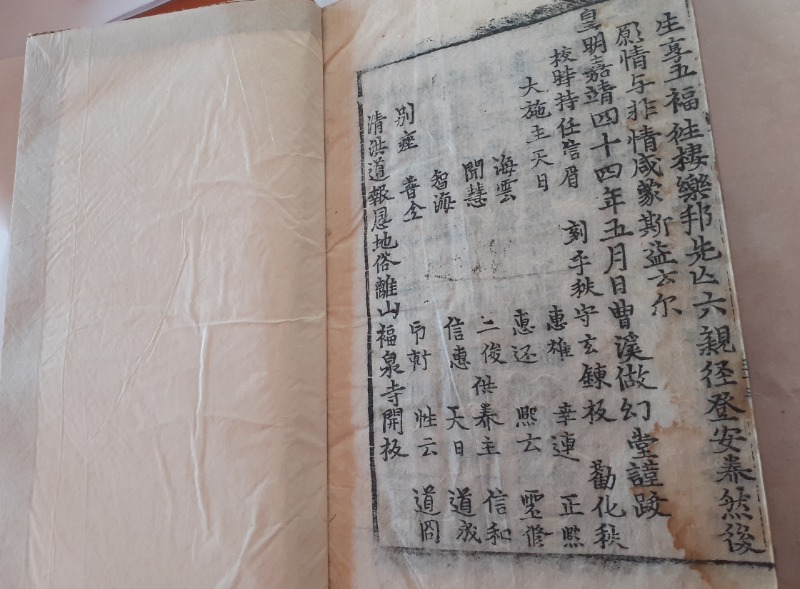 生享五福徃捿樂邦先亡六親徑登安養然後
願情与非情咸蒙斯益云尔
皇明嘉靖四十四年五月日曹溪做幻堂謹跋
校時持任信眉 刻手秩守玄鍊板 勸化秩
大施主天日 惠雄 幸連 正熈
海雲 惠还 熈玄 灵修
聞慧 三俊 供养主 信和
智海 信惠 天日 道成
別座 普全 性云 道冏
清洪道報恩地俗離山福泉寺開板